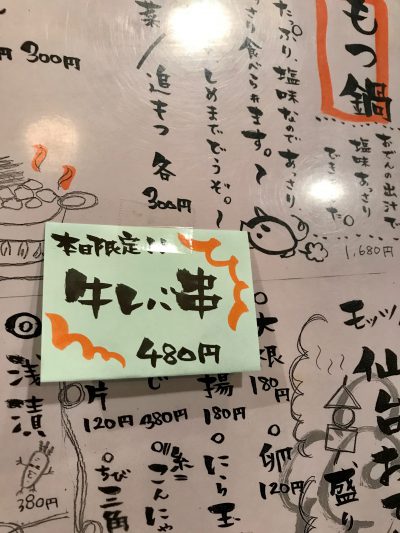 もつ鍋
おでんの出汁で
塩味あっさり
できました。
1,680円
たっぷり、塩味なのであっさり
さり食べられます。〜
しめまでどうぞ。〜
薬/追もつ 各
300円
300円
本日限定!!
牛レバ串
480円
大根
180円
卵
120円
揚
180円
にら玉
380円
糸こんにゃ
片
120円
ちび三角
浅漬
380円
モッツ
仙台おで
盛り